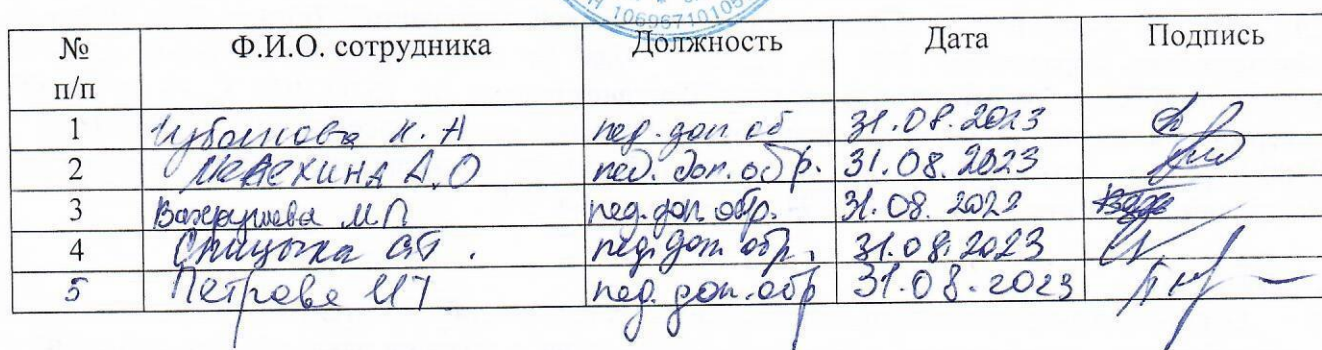 1069671010
№ п/п Ф.И.О. сотрудника Должность Дата Подпись
1 Н. Н пед. доп об 31.08.2023
2 А.О пед. доп. обр. 31.08.2023
3 Вахрушева М.П пед. доп. обр. 31.08.2022
4 Спицына пед. доп обр. 31.08.2023
5 Петрова пед. доп. обр 31.08.2023